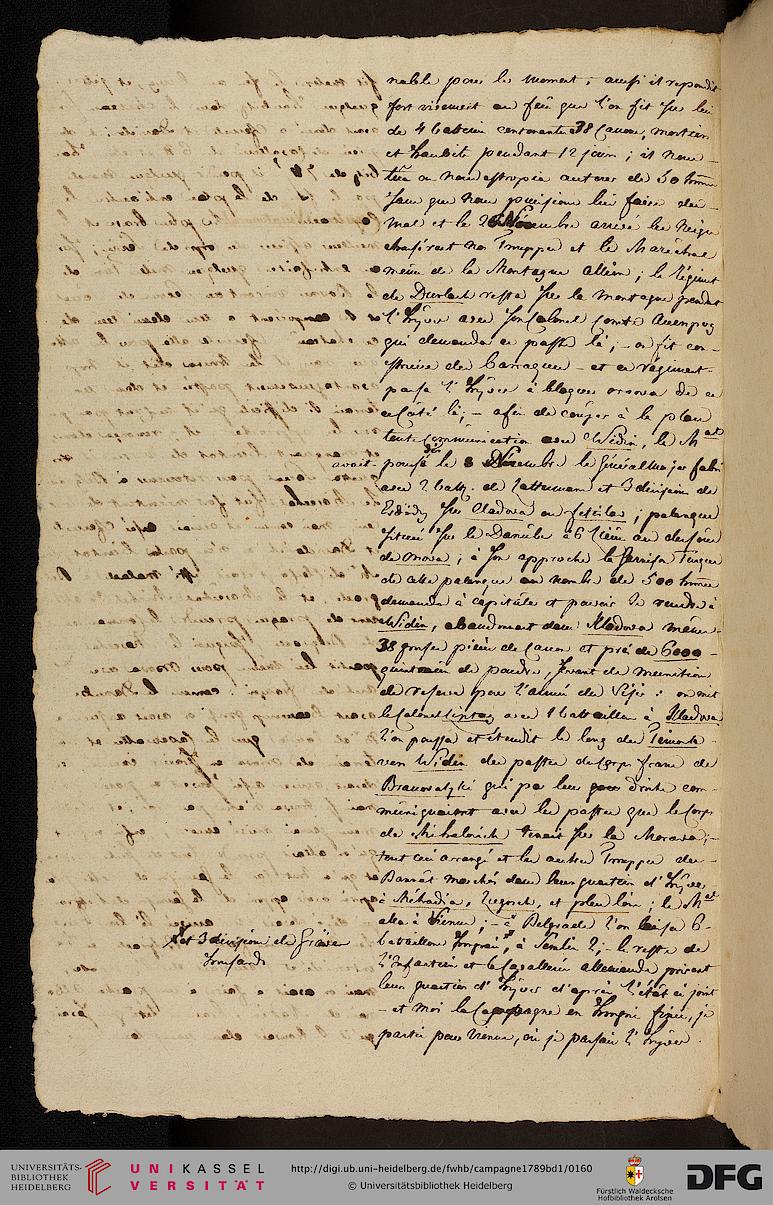 nable pour le moment ; aussi il repondit
fort vivement au feu que l'on fit sur lui
de 4 batterie contenante 38 Canon, mortiers
et haubits pendant 12 jours ; il nous
tua ou nous estropia autour de 50 hommes
sans que nous puissions lui faire du
mal et le 2 Novembre arrivé les Neiges
chasserent nos Trouppes et le Marechal
même de la Montagne Allion ; le Régiment
de Durlach resta sur la montagne pendant
l'hyver avec son Colonel Comte Auersperg
qui demanda ce poste là ; – on fit con-
struire des barraques – et ce régiment
passa l'hyver à bloquer orsova de ce
coté là ; – afin de couper à la place
toute communication avec Widin, le Mal
avoit poussé dès le 3 Novembre le Général Major fabri
avec 2 batt. de Lattermann et 3 division de
Erdödy sur Cladova ou fetislav ; palanque
située sur le Danube à 6 lieue au dessous
de orsova ; à son approche la Garnison Turque
de cette palanque au nombre de 500 hommes
demanda à capituler et pouvoir se rendre à
Widin, abandonnant dans Kladova même
38 grosse pièces de Canon et près de 6000
quintaux de poudre, servant de munition
de reserve pour l'armée du Visir : on mit
le Colonel Liptay avec 1 bataillon à Kladova
l'on poussa et etendit le long du Timock
vers Widin des postes du Corps franc de
Branovatzki qui par leur gauche droite com-
muniquaient avec les postes que le Corps
de Mihalovich tenait sur la Morava ; –
tout ceci arrangé et les autres Trouppes du
Bannat marchés dans leurs quartier d'hyver
à Mehadia, et ; le Mal
alla à Vienne ; – à Belgrade l'on laissa 6
bataillons hongrois, à Semlin 2 ; – le reste de
X et 3 division de Gräven
housards
l'Infanterie et la Cavallerie allemande prirent
leurs quartier d'hyver d'après l'état ci joint
– et moi la Campagne en hongrie finie, je
partis pour vienne, où je passai l'hyver.
UNIVERSITÄTS-
BIBLIOTHEK
HEIDELBERG
UNIKASSEL
VERSITÄT
http://digi.ub.uni-heidelberg.de/fwhb/campagne1789bd1/0160
© Universitätsbibliothek Heidelberg
Fürstlich Waldecksche
Hofbibliothek Arolsen
DFG